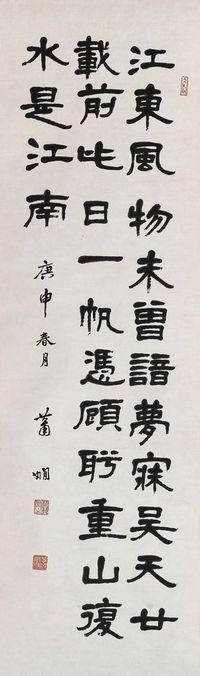 江東風物未曾諳夢寐吳天廿
載前此日一帆憑顧盻重山復
水是江南
庚申春月 蕭嫻